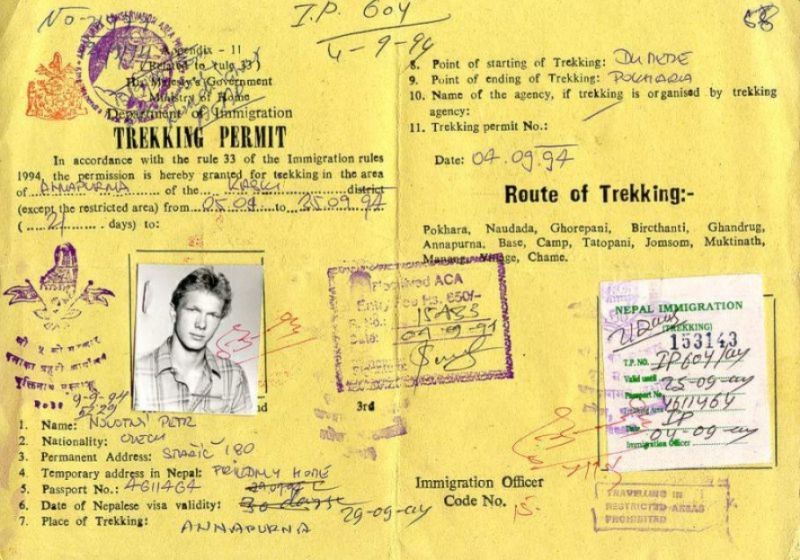 I.P. 604
4-9-94
68
Appendix - 11
(Related to rule 33)
His Majesty's Government
Ministry of Home
Department of Immigration
TREKKING PERMIT
In accordance with the rule 33 of the Immigration rules
1994, the permission is hereby granted for trekking in the area
of ANNAPURNA of the KASKI district
(except the restricted area) from 05.09 to 25.09.94
(21 days) to:
9-9-94
1. Name: NOVOTNÝ PETR
2. Nationality: CZECH
3. Permanent Address: STAŘÍČ 190
4. Temporary address in Nepal: FRIENDLY HOME
5. Passport No.: 4611464
6. Date of Nepalese visa validity: 30 days 29-09-94
7. Place of Trekking: ANNAPURNA
8. Point of starting of Trekking: DUMRE
9. Point of ending of Trekking: POKHARA
10. Name of the agency, if trekking is organised by trekking
agency:
11. Trekking permit No.:
Date: 04.09.94
Route of Trekking:-
Pokhara, Naudada, Ghorepani, Bircthanti, Ghandrug,
Annapurna, Base, Camp, Tatopani, Jomsom, Muktinath,
Manang, Village, Chame.
Received ACA
Entry Fee Rs. 650/-
R. No.: 15483
04-9-94
3rd
NEPAL IMMIGRATION
(TREKKING)
153143
T.P. NO. IP604/94
Valid until 25-09-94
Passport No. 4611464
Trekking Area IP
Date 04-09-94
Immigration Officer
Immigration Officer
Code No. 15.
TRAVELLING IN
RESTRICTED AREAS
PROHIBITED